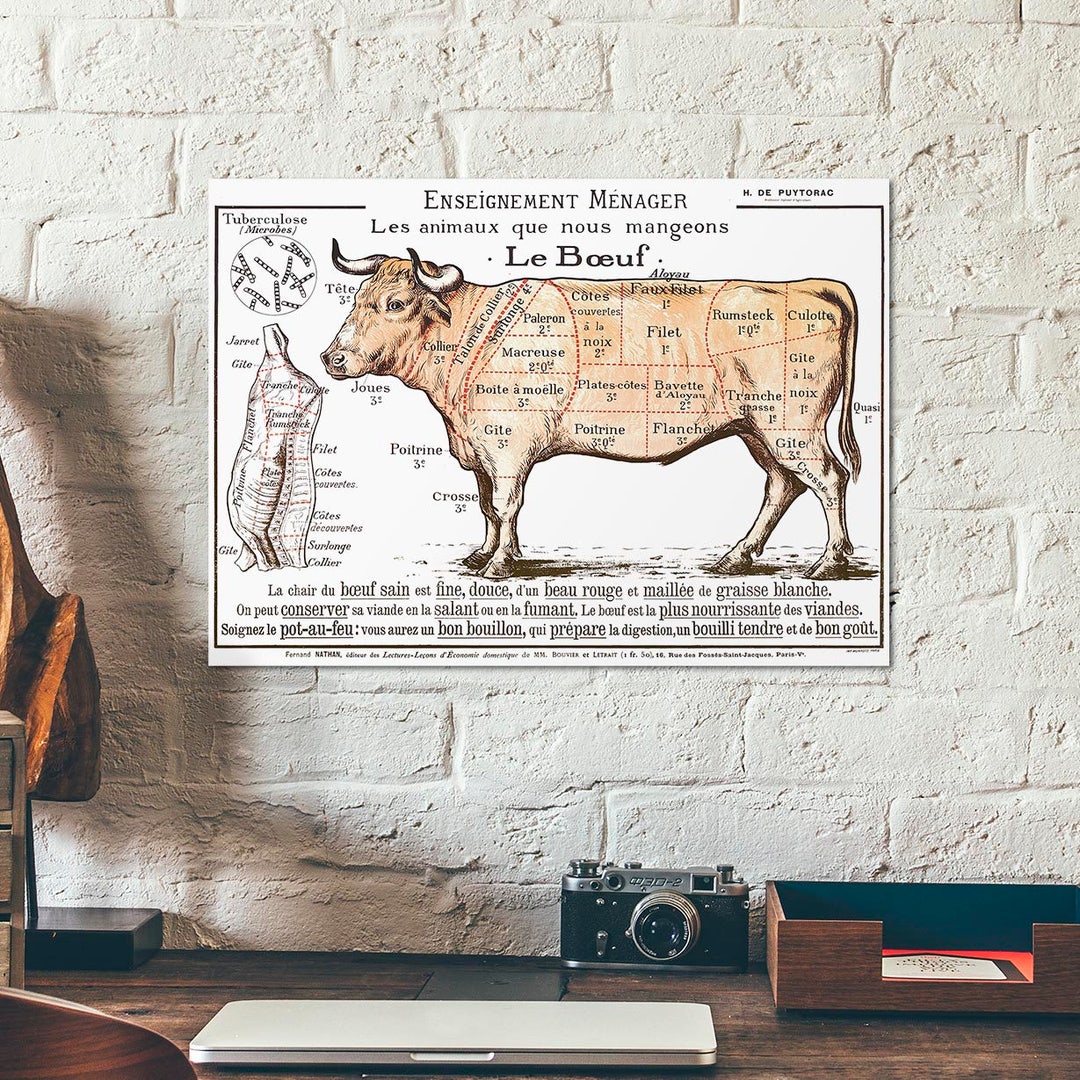 ENSEIGNEMENT MÉNAGER
H. DE PUYTORAC
Les animaux que nous mangeons
· Le Bœuf ·
Tuberculose
(Microbes)
Jarret
Gîte
Tranche
Culotte
Tranche
Rumsteck
Flanchet
Filet
Plates
côtes
Poitrine
Côtes
couvertes.
Côtes
découvertes
Gîte
Surlonge
Collier
Tête
3e
Joues
3e
Collier
3e
Talon de Collier
Surlonge
Paleron
2e
Macreuse
2e qté
Boîte à moëlle
3e
Gîte
3e
Poitrine
3e
Crosse
3e
Côtes
couvertes
à la
noix
2e
Aloyau
Faux Filet
1e
Filet
1e
Plates-côtes
3e
Bavette
d'Aloyau
2e
Poitrine
3e qté
Flanchet
3e
Rumsteck
1e qté
Culotte
1e
Tranche
grasse
1e
Gîte
à la
noix
1e
Quasi
1e
Gîte
3e
Crosse
La chair du bœuf sain est fine, douce, d'un beau rouge et maillée de graisse blanche.
On peut conserver sa viande en la salant ou en la fumant. Le bœuf est la plus nourrissante des viandes.
Soignez le pot-au-feu : vous aurez un bon bouillon, qui prépare la digestion, un bouilli tendre et de bon goût.
Fernand NATHAN, éditeur des Lectures-Leçons d'Économie domestique de MM. BOUVIER et LETRAIT (1 fr. 50), 16, Rue des Fossés-Saint-Jacques. Paris-Ve.
ФЭД-2